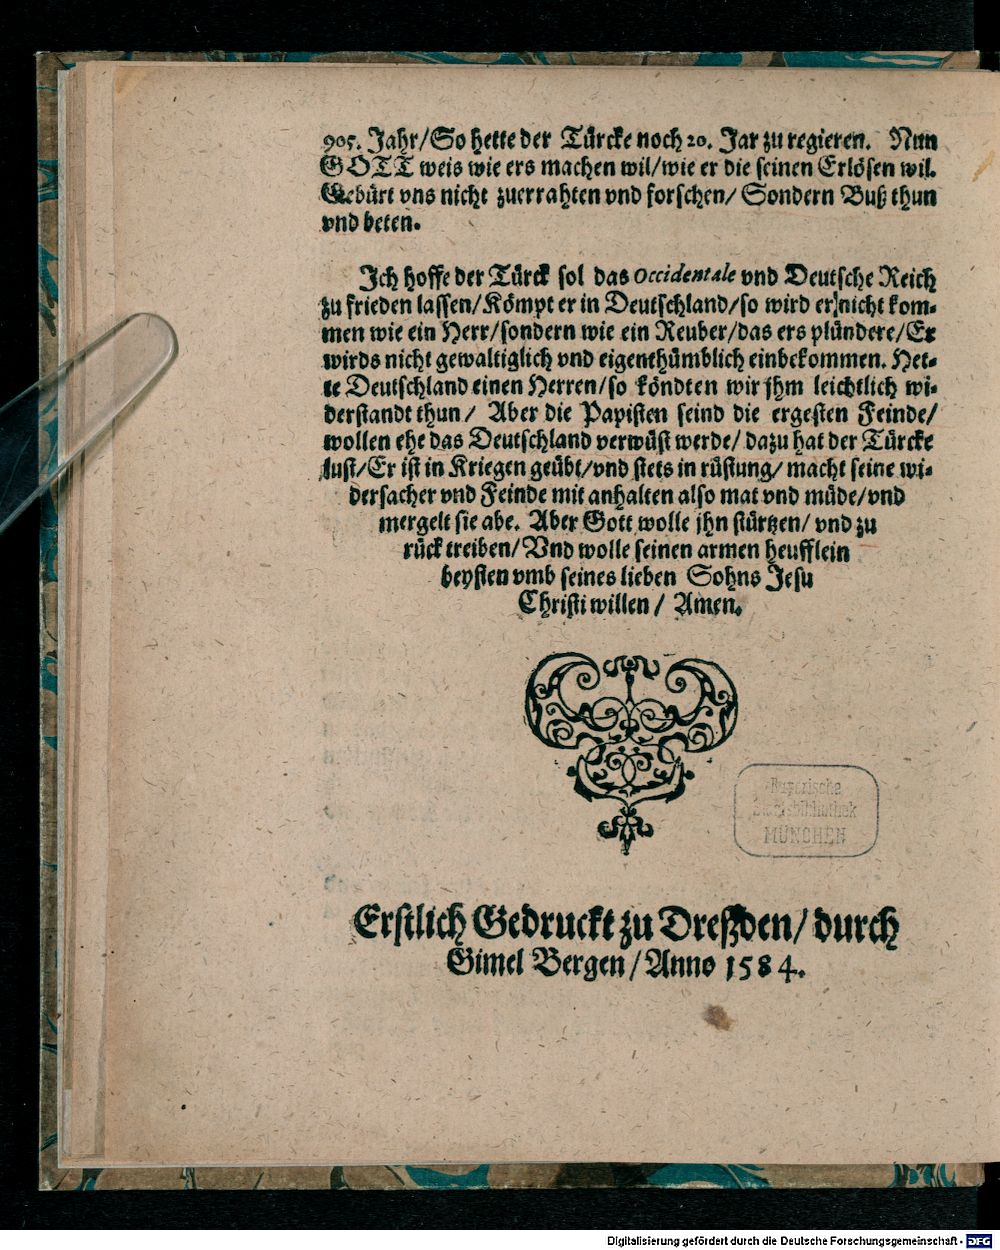 905. Jahr/So hette der Türcke noch 20. Jar zu regieren. Nun
GOTT weis wie ers machen wil/wie er die seinen Erlösen wil.
Gebürt vns nicht zuerrahten vnd forschen/ Sondern Buß thun
vnd beten.
Ich hoffe der Türck sol das Occidentale vnd Deutsche Reich
zu frieden lassen/Kömpt er in Deutschland/so wird er nicht kom-
men wie ein Herr/sondern wie ein Reuber/das ers plündere/Er
wirds nicht gewaltiglich vnd eigenthümblich einbekommen. Het-
te Deutschland einen Herren/so köndten wir jhm leichtlich wi-
derstandt thun/ Aber die Papisten seind die ergesten Feinde/
wollen ehe das Deutschland verwüst werde/ dazu hat der Türcke
lust/Er ist in Kriegen geübt/vnd stets in rüstung/ macht seine wi-
dersacher vnd Feinde mit anhalten also mat vnd müde/vnd
mergelt sie abe. Aber Gott wolle jhn stürtzen/ vnd zu
rück treiben/ Vnd wolle seinen armen heufflein
beysten vmb seines lieben Sohns Jesu
Christi willen / Amen.
Bayerische
Staatsbibliothek
MÜNCHEN
Erstlich Gedruckt zu Dreßden/ durch
Gimel Bergen/Anno 1584.
Digitalisierung gefördert durch die Deutsche Forschungsgemeinschaft - DFG